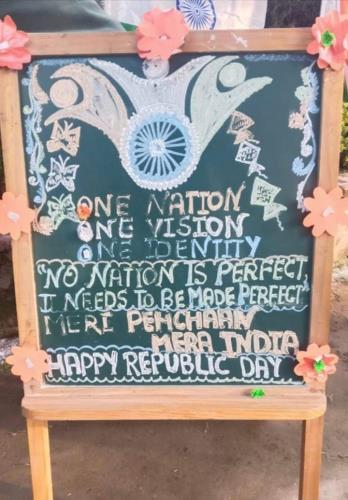 ONE NATION
ONE VISION
ONE IDENTITY
"NO NATION IS PERFECT,
IT NEEDS TO BE MADE PERFECT
MERI PEHCHAAN
MERA INDIA
HAPPY REPUBLIC DAY